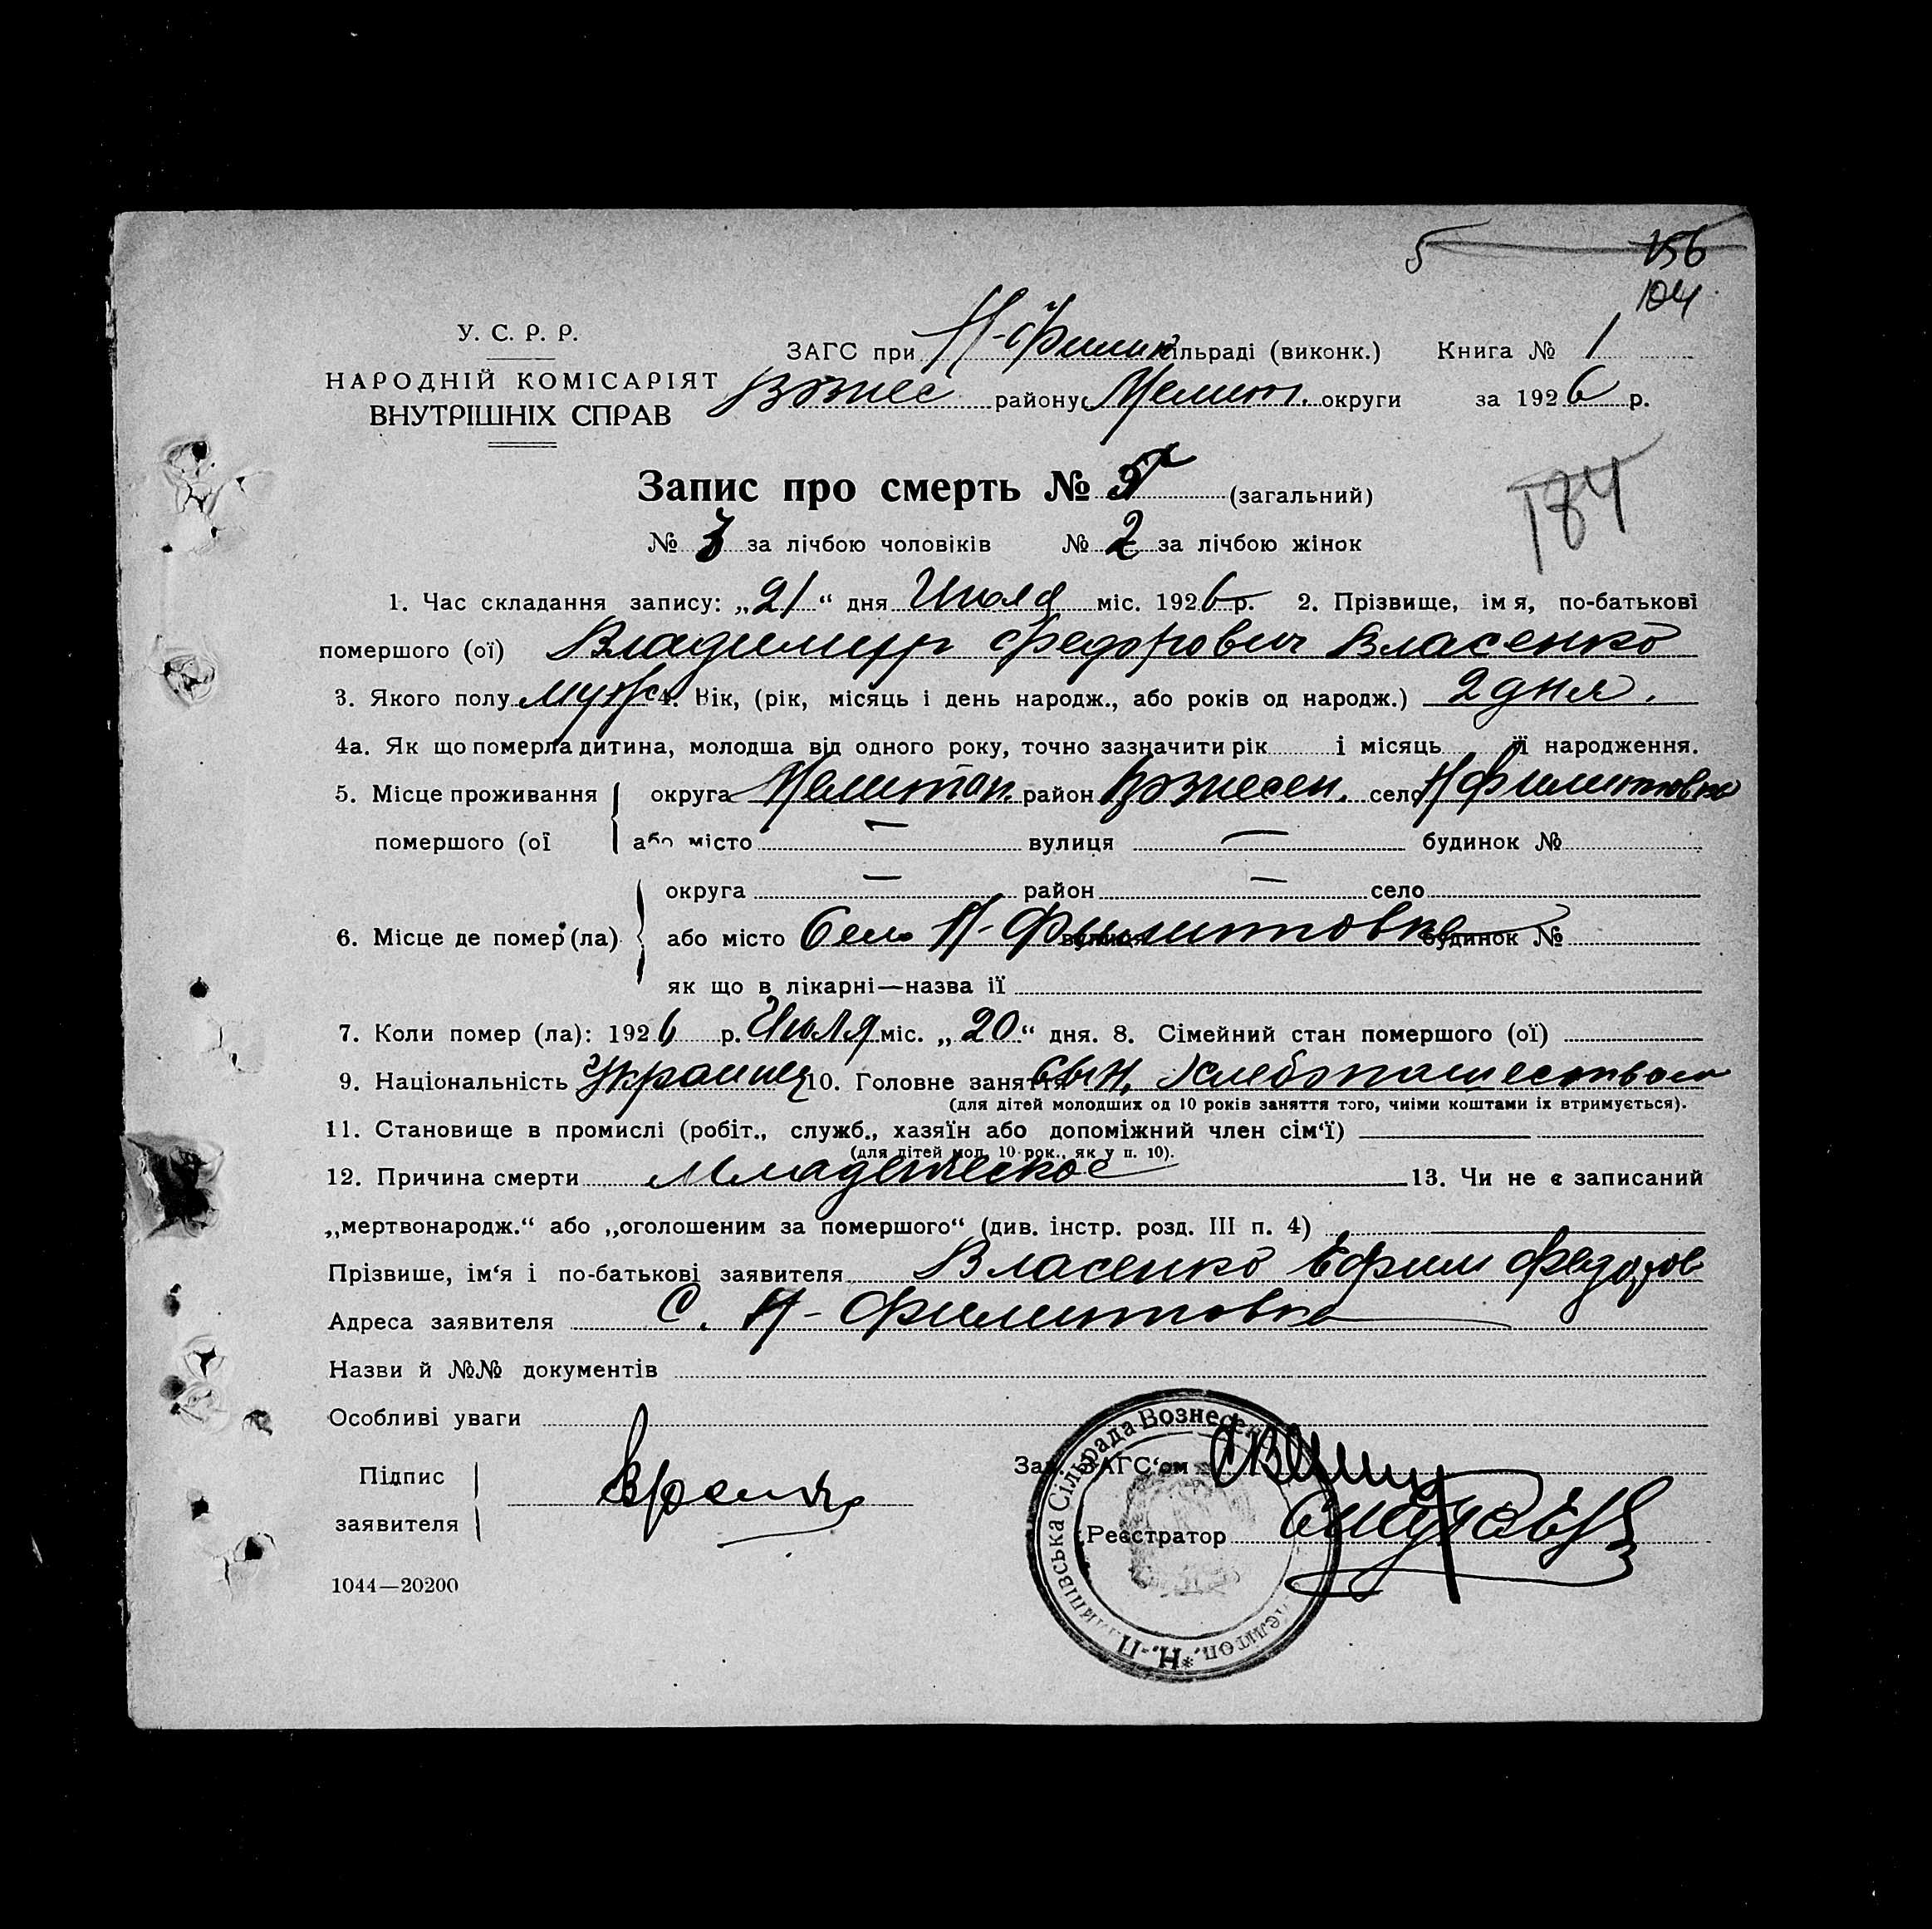 5 156
104
У. С. Р. Р.
НАРОДНІЙ КОМІСАРІЯТ
ВНУТРІШНІХ СПРАВ
ЗАГС при Н-Филип сільраді (виконк.) Книга № 1
Вознес району Мелит. округи за 1926 р.
Запис про смерть № 5 (загальний)
184
№ 3 за лічбою чоловіків № 2 за лічбою жінок
1. Час складання запису: „21“ дня Июля міс. 1926 р. 2. Прізвище, імя, по-батькові
помершого (ої) Владимир Федорович Власенко
3. Якого полу муж 4. Вік, (рік, місяць і день народж., або років од народж.) 2 дня.
4а. Як що померла дитина, молодша від одного року, точно зазначити рік і місяць її народження.
5. Місце проживання округа Мелитоп. район Вознесен. село Н Филиповка
помершого (ої або місто — вулиця — будинок №
округа — район — село
6. Місце де помер (ла) або місто Село Н-Филиповка вулиця будинок №
як що в лікарні—назва її
7. Коли помер (ла): 1926 р. Июля міс. „20“ дня. 8. Сімейний стан помершого (ої)
9. Національність Украинец 10. Головне заняття сын, хлебопашеством
(для дітей молодших од 10 років заняття того, чиїми коштами їх втримується).
11. Становище в промислі (робіт., служб., хазяїн або допоміжний член сім‘ї)
(для дітей мол. 10 рок., як у п. 10).
12. Причина смерти Младенческое 13. Чи не є записаний
„мертвонародж.“ або „оголошеним за помершого“ (див. інстр. розд. III п. 4)
Прізвище, ім‘я і по-батькові заявителя Власенко Ефим Федоров
Адреса заявителя С. Н-Филиповка
Назви й №№ документів
Особливі уваги
Підпис
заявителя
Зав. ЗАГС‘ом
Реєстратор
1044—20200